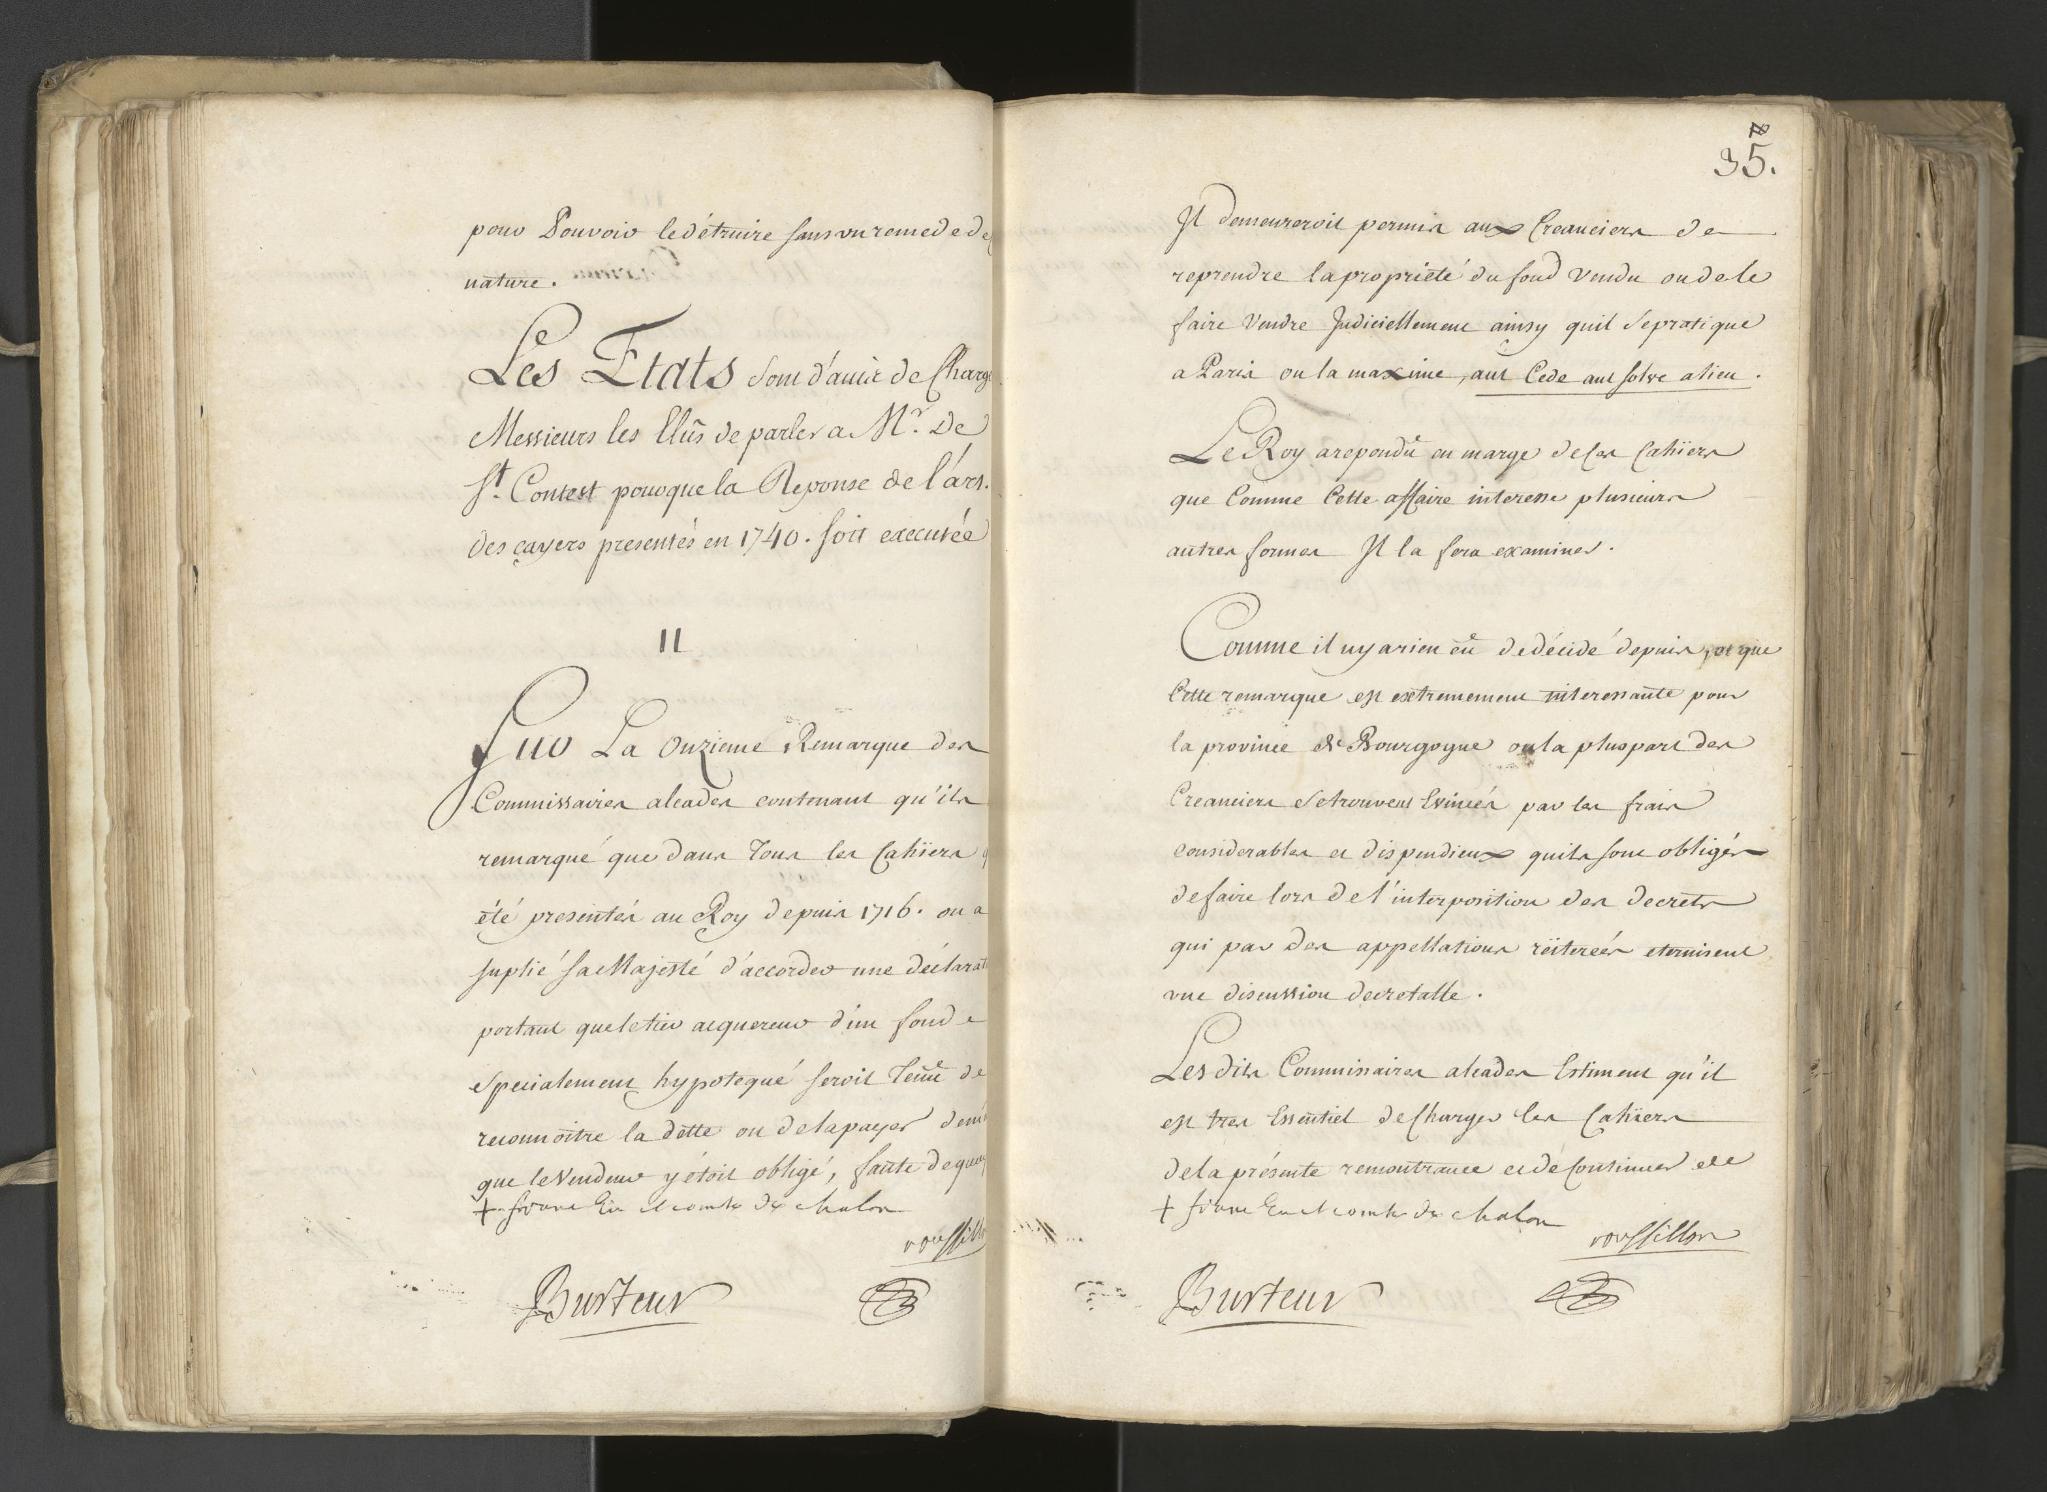 pour Pouvoir le détruire sans un remede de
nature.
Les Etats sont d'avis de Charg
Messieurs les Elûs de parler a Mr. De
St. Contest pour que la Reponse de l'art.
des cayers presentés en 1740. soit executée
11
Sur La Onzieme Remarque des
Commissaires alcades contenant qu'ils
remarqué que dans Tous les Cahiers q
été presentés au Roy depuis 1716. on a
suplié sa Majesté d'accorder une déclarat
portant que le tier acquereur d'un fond
specialement hypotequé seroit Tenû de
reconnoitre la dette ou de la payer
que le Vendeur y étoit obligé, faute de quoy
+ françois Ev. et comte de chalon
roussill
Burteur
35.
Il demeureroit permis aux Creanciers de
reprendre la propriété du fond Vendu ou de le
faire Vendre Judiciellement ainsy quil se pratique
a Paris ou la maxime, aut Cede aut solve a lieu.
Le Roy a repondû en marge de Ces Cahiers
que Comme Cette affaire interesse plusieurs
autres fermes Il la fera examiner.
Comme il ny a rien eû de décidé depuis, et que
Cette remarque est extremement interessante pour
la province de Bourgogne ou la pluspart des
Creanciers se trouvent Evincés par les frais
considerables et dispendieux quils sont obligés
de faire lors de l'interposition des decrets
qui par des appellations réiterées eternisent
une discussion decretalle.
Les dits Commissaires alcades Estiment qu'il
est tres Essentiel de Charger les Cahiers
de la présente remontrance et de Continuer de
+ françois Ev. et comte de chalon
roussillon
Burteur